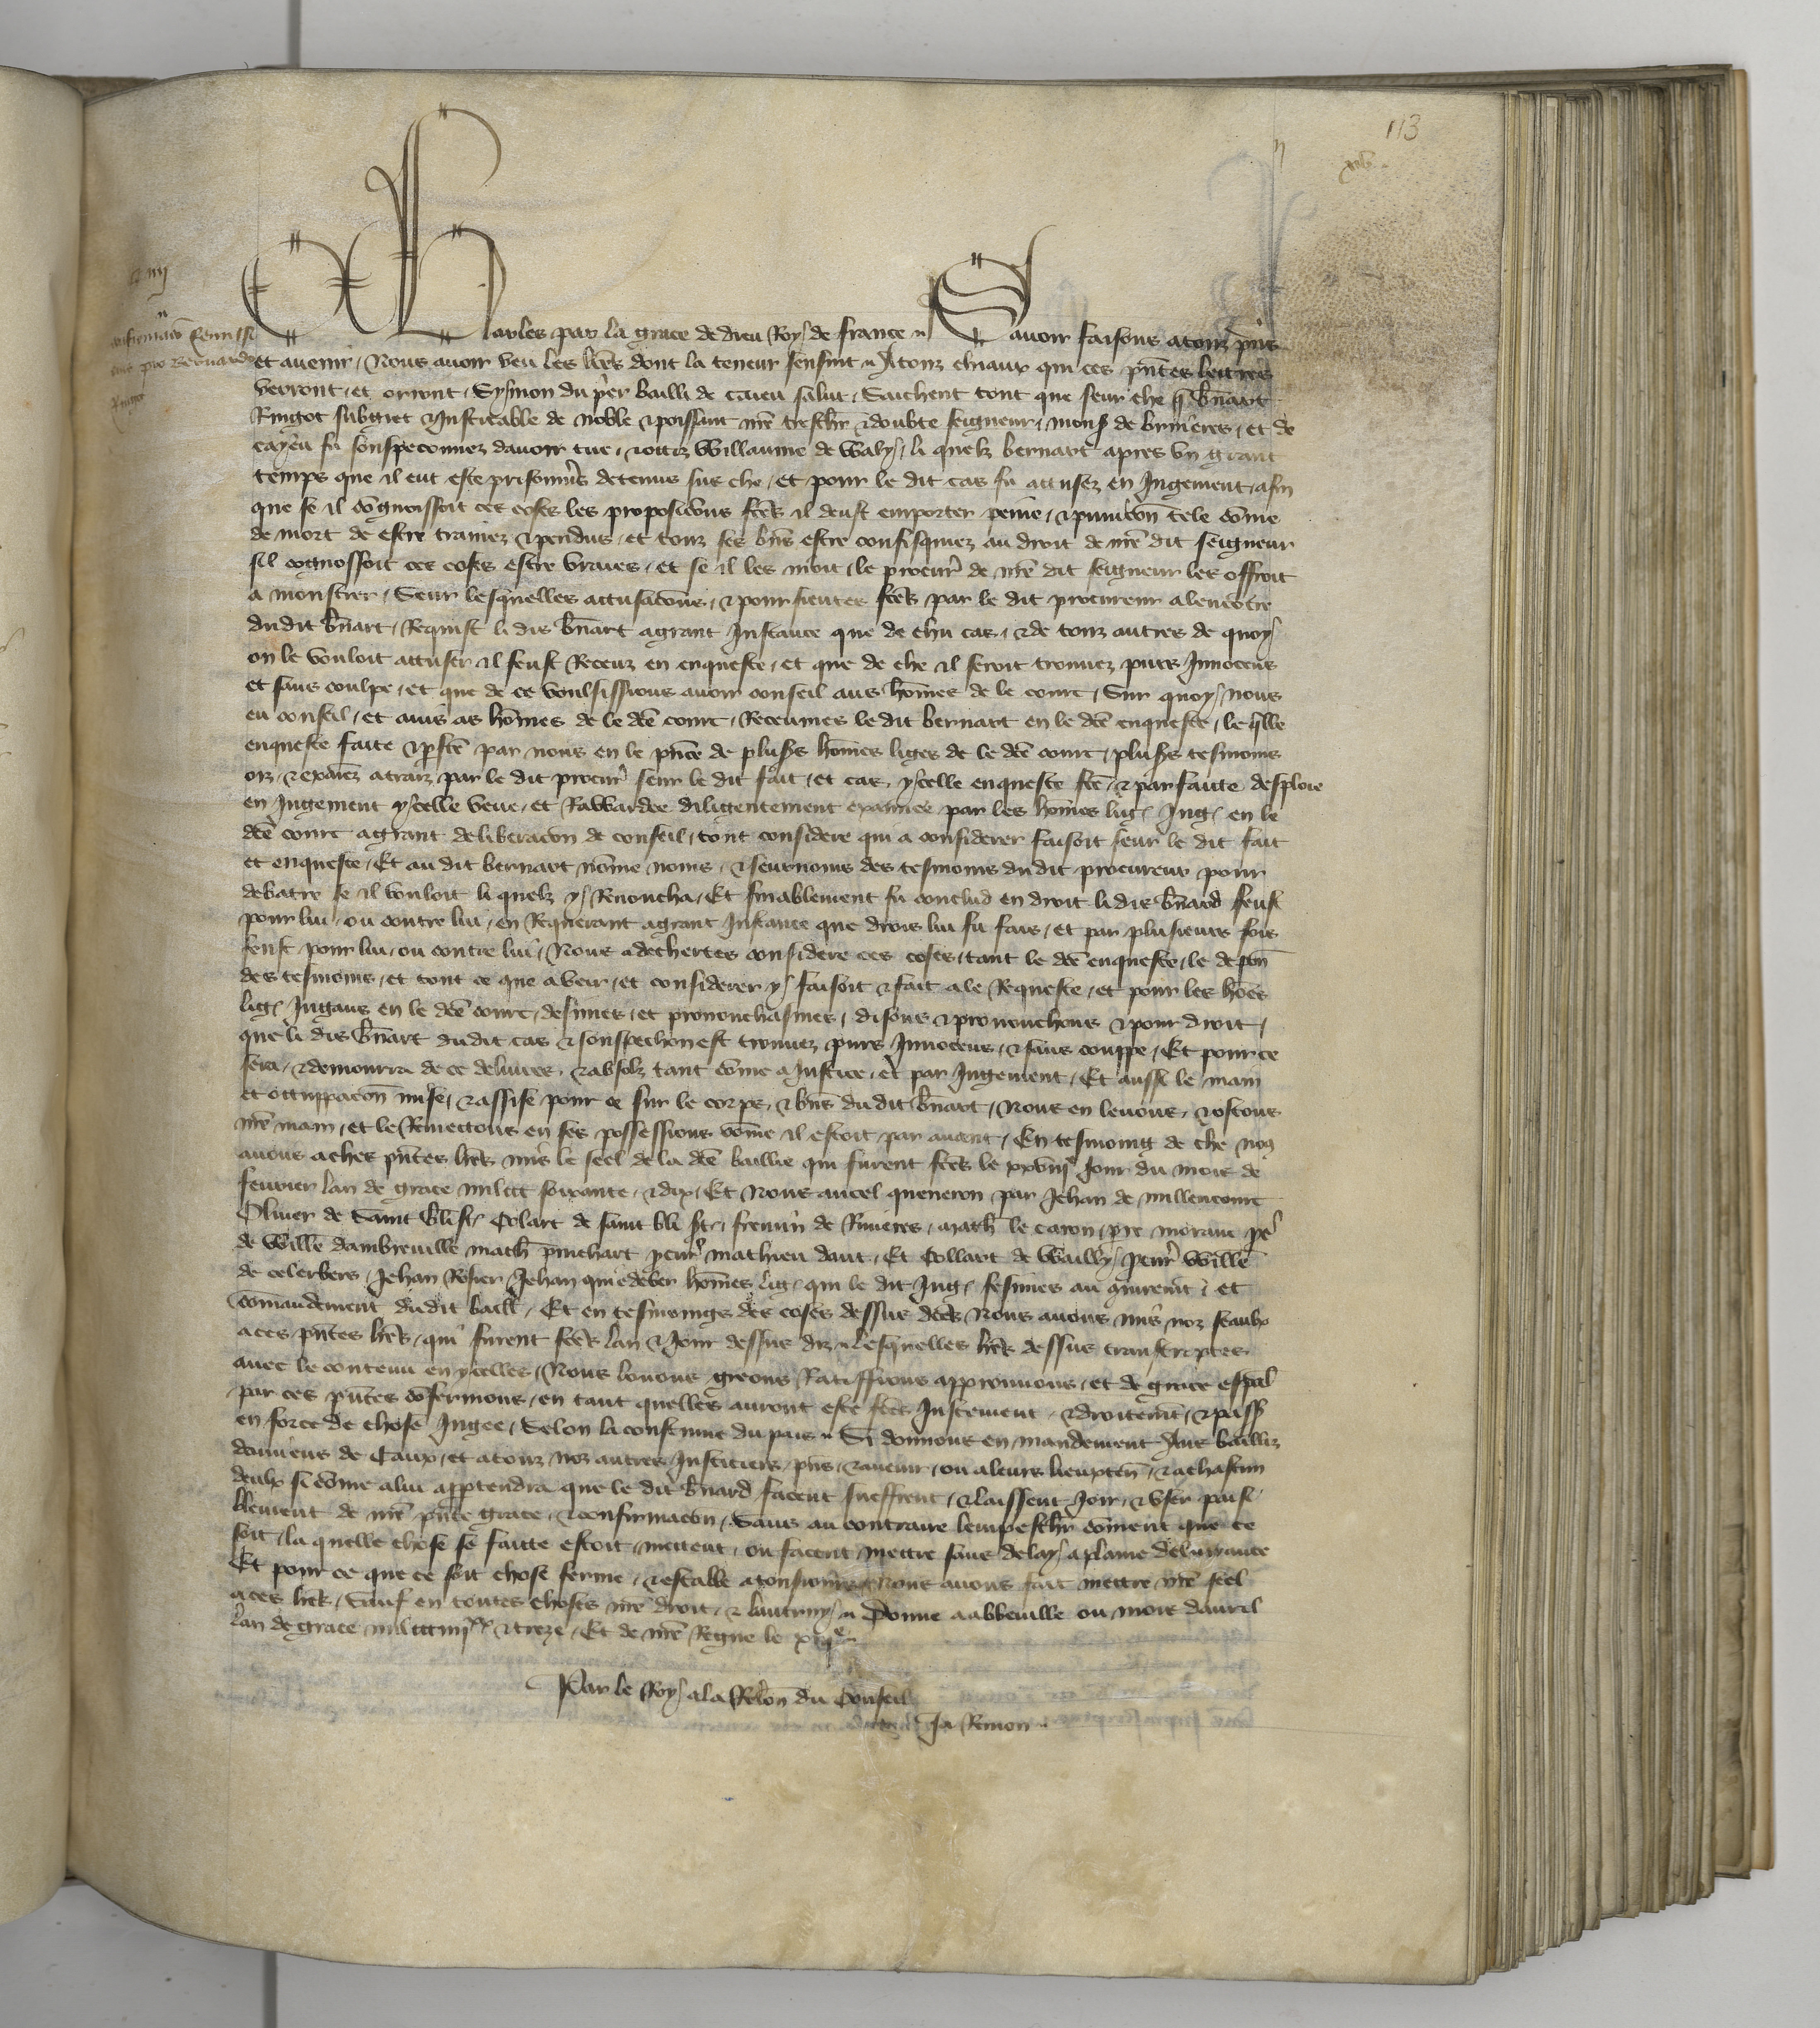 113
iiii
confirmacio sentencie
pro Bernardo
Ringot
Charles par la grace de dieu Roy de france Savoir faisons a touz p̃ns
et avenir Nous avoir veu les lr̃es dont la teneur sensuit A touz chiaux qui ces p̃ntes lettres
verront et orront Symon du per bailli de caieu salut Saichent tout que seur che q̃ Bñart
Ringot subgiet & Justicable de noble & poissant nr̃e treschr̃ & doubte seigneur mons̃ de bruieres et de
cayeu fu souspeconnez davoir tue & ocirz Willaume de Waly li quelz bernart apres un grant
temps que il eut este prisonnr̃s detenus sur che et pour le dit cas fu accusez en Jugement afin
que se il cognoissoit ces coses les proposic̃ons fc̃es il deust emporter peine & punic̃on tele com̃e
de mort de estre trainez & pendus et touz ses bñs estre confisquiez au droit de nr̃e dit seigneur
sil cognossoit ces coses estre vraies et se il les nioit le procur̃ de nr̃e dit seigneur les offroit
a monstrer Seur lesquelles accusac̃ons & poursieutes fc̃es par le dit procureur alencõtre
dudit Bñart Requist li dis Bñart a grant Instance que de chu cas & de touz autres de quoy
on le vouloit accuser il feust Receuz en enqueste et que de che il seroit trouuez purs Innocens
et sans coulpe et que de ce voulsissions avoir conseil aus hom̃es de le court Sur quoy nous
eu conseil et avis as hom̃es de le dc̃e court Receumes le dit bernart en le dc̃e enqueste le q̃lle
enqueste faite & p̃fc̃e par nous en le p̃nce de plus̃s hom̃es liges de le dc̃e court plus̃s tesmoins
oiz & examĩez a traiz par le dit procur̃ seur le dit fait et cas ycelle enqueste fc̃e & parfaite desploie
en Jugement ycelle veue et Rawardee diligentement examinee par les hom̃es lig̃ Jug̃ en le
dc̃e court a grant deliberac̃on de conseil tout considere qui a considerer faisoit seur le dit fait
et enqueste Et au dit bernart nõme noms & seurnoms des tesmoins du dit procureur pour
debatre se il vouloit li quelz y Renoncha Et finablement fu conclud en droit li dis Bñard feust
pour lui ou contre lui en Requerant a grant Instance que drois lui fu fais et par plusieurs fois
feust pour lui ou contre lui Nous adechertes considere ces coses tant le dc̃e enqueste le depõn
des tesmoins et tout ce que a veir et considerer y faisoit & fait a le Requeste et pour les hões
lig̃ Jugans en le dc̃e court desimes et prononchasmes disons & prononchons & pour droit
que li dis Bñart du dit cas & souspechon est trouuez purs Innocens & sans couppe Et pour ce
sera & demourra de ce delivres & absolz tant com̃e a Justice et par Jugement Et aussi le main
et occuppac̃on mise & assise pour ce sur le corps & bñs du dit Bñart Nous en levons & ostons
nr̃e main et le Remectons en ses possessions com̃e il estoit par avant En tesmoing de che noꝰ
avons a ches p̃ntes lr̃es mis le seel de la dc̃e baillie qui furent fc̃es le xxviiiᵉ Jour du mois de
fevrier lan de grace mil ccc soixante & dix Et Nous ancel queneron par Jehan de millencourt
Olivier de Saint Blis̃ Colart de saint bli fremin de Rivieres math̃ le caron pr̃e morant p̃r
de Willẽ dambreville math̃ pinchart procur̃ mathieu daut Et Collart de Wailly procur̃ Willẽ
de celerbers Jehan Rosier Jehan quiedever hom̃es lig̃ qui le dit Jug̃ fesimes au quiremt̃ et
com̃andement dudit baill̃ Et en tesmoings des coses dessus dc̃es Nous avons mis noz seaulx
a ces p̃ntes lr̃es qui furent fc̃es lan & Jour dessus diz lesquelles lr̃es dessus transcriptes
avec le contenu en ycelles Nous louons greons Ratiffions approuvons et de grace esp̃al
par ces p̃ntes cõfermons en tant quelles auront este fc̃es Justement & droitem̃t & pass̃
en force de chose Jugee Selon la coustume du pais Si donnons en mandement Aus bailliz
damiens de Caux et a touz noz autres Justiciers p̃ns & avenir ou a leurs lieuxten̄ & a chascun
deulx si com̃e a lui appartendra que le dit Bñard facent sueffrent & laissent Joir & user paisi
blement de nr̃e p̃nte grace & confirmac̃on Sans au contraire lempeschr̃ com̃ent que ce
soit la quelle chose se faitte estoit mettent ou facent mettre sans delay a plaine delivrance
Et pour ce que ce soit chose ferme & estable a tousiours Nous avons fait mettre nr̃e seel
a ces lr̃es Sauf en toutes choses nr̃e droit & lautruy Donne a abbeville ou mois davril
lan de grace mil ccc iiiiˣˣ & treze Et de nr̃e Regne le xiiiᵉ
Par le Roy a la Relõn du Conseil
Ja Remon